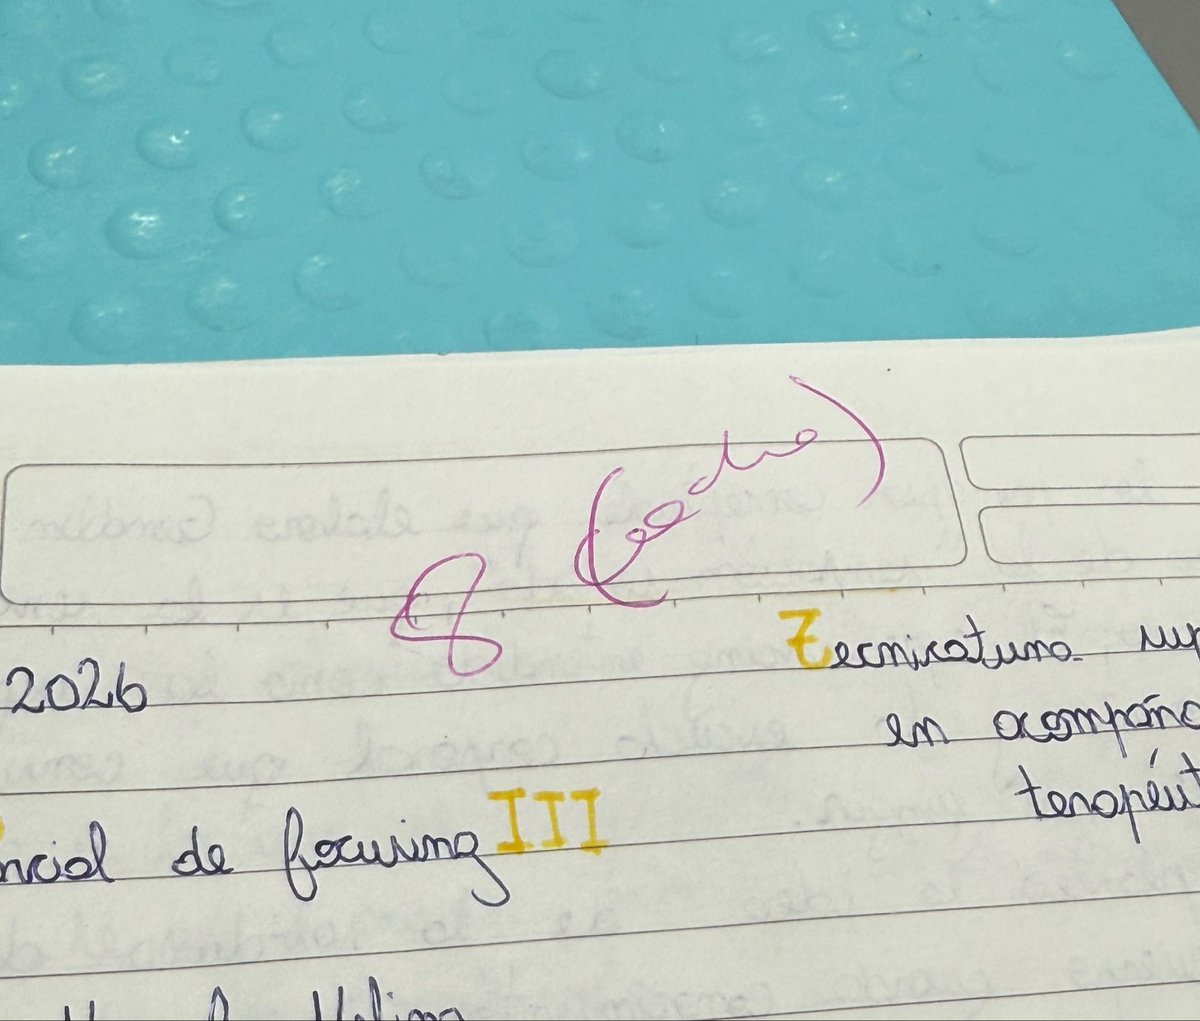 8 (ocho)
2026
Tecnicatura sup
en acompaña
terapéut
ncial de focusing III